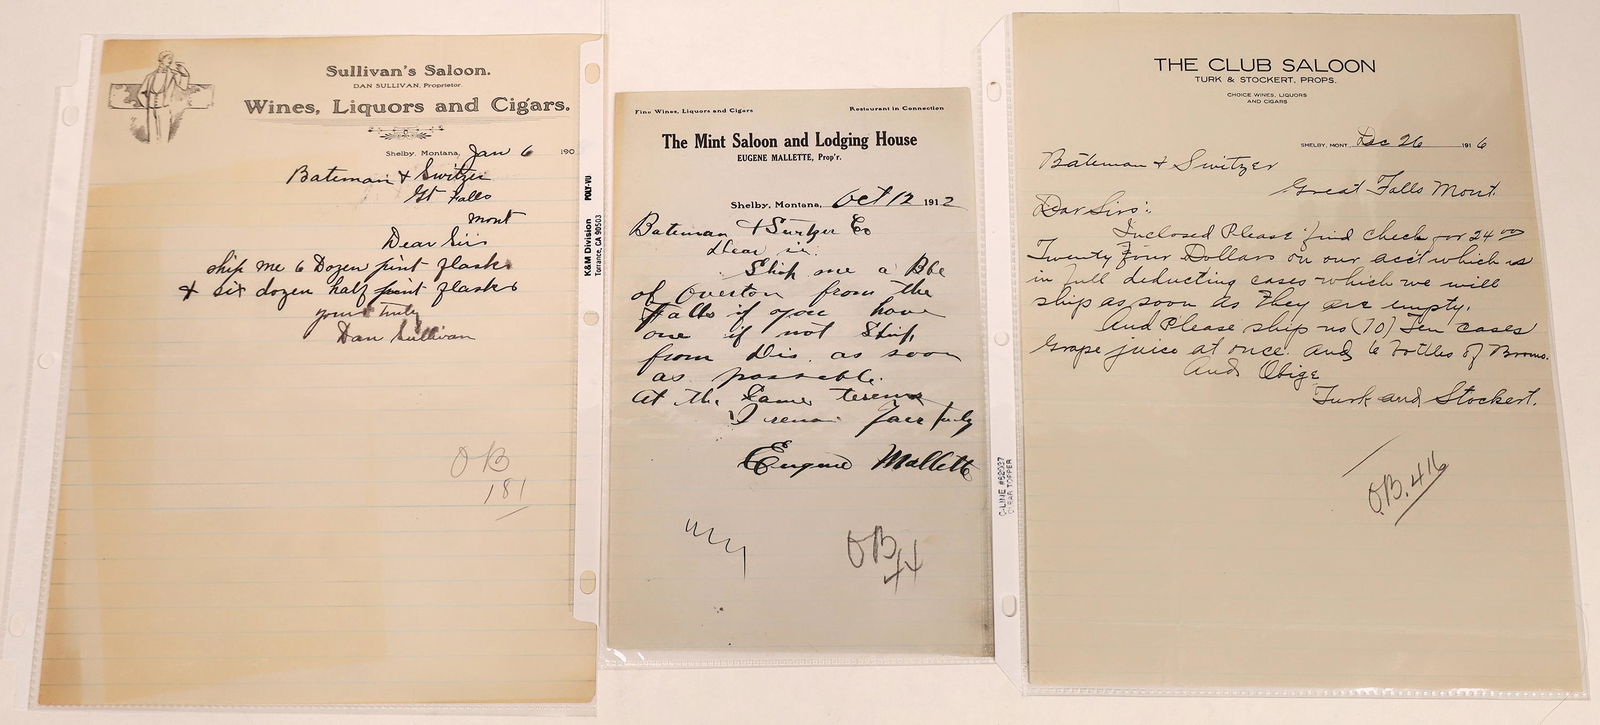 Sullivan's Saloon.
DAN SULLIVAN, Proprietor.
Wines, Liquors and Cigars.
Shelby, Montana, Jan 6 190
Bateman & Switzer
Gt Falls
Mont
Dear Sirs
Ship me 6 Dozen pint flasks
& six dozen half pint flasks
yours Truly
Dan Sullivan
OB
181
K&M Division POLY-VU
Torrance, CA 90503
Fine Wines, Liquors and Cigars Restaurant in Connection
The Mint Saloon and Lodging House
EUGENE MALLETTE, Prop'r.
Shelby, Montana, Oct 12 1912
Bateman & Switzer Co
Dear sir.
Ship me a Bbl
of Overton from the
Falls if you have
one if not Ship
from Dis. as soon
as possable.
At the Same terems
I remain Your truly
Eugene Mallette
OB
44
C-LINE #62037
THE CLUB SALOON
TURK & STOCKERT, PROPS.
CHOICE WINES, LIQUORS
AND CIGARS
SHELBY, MONT. Dec 26 1916
Bateman & Switzer
Great Falls Mont.
Dear Sirs:
Inclosed Please find check for 24 00
Twenty Four Dollars on our acc't which is
in full deducting cases which we will
ship as soon as They are empty.
And Please ship us (10) Ten cases
Grape juice at once. and 6 bottles of Bromo.
And Oblige
Turk and Stockert.
O.B. 416